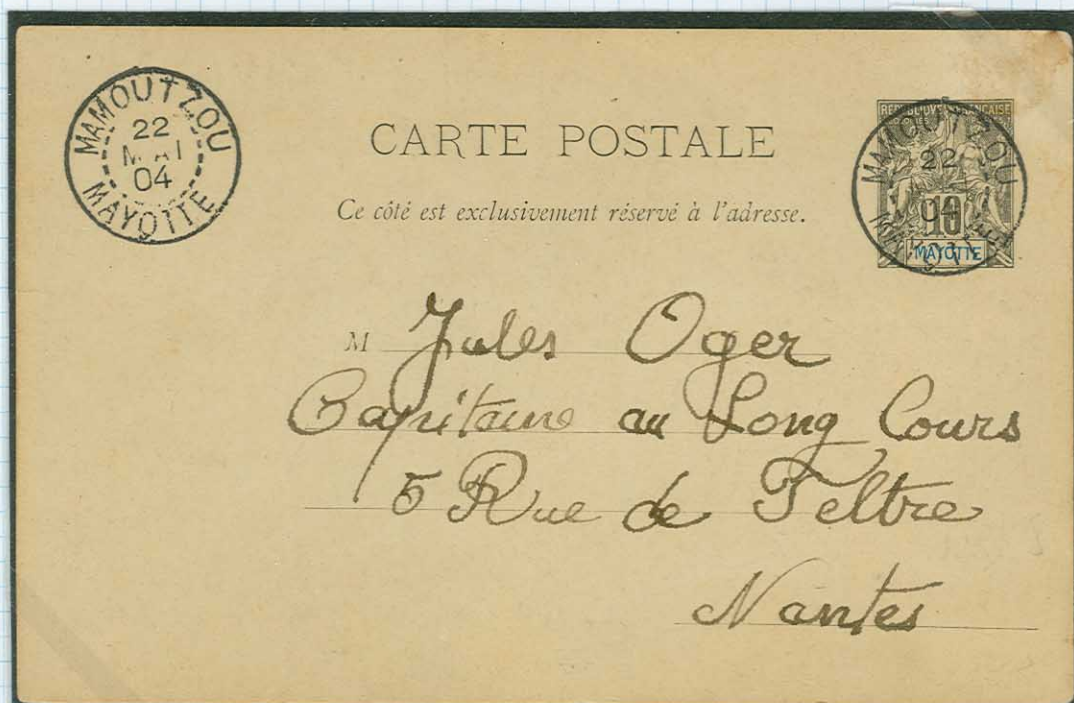 MAMOUTZOU
22
MAI
04
MAYOTTE
CARTE POSTALE
Ce côté est exclusivement réservé à l'adresse.
REPUBLIQUE FRANÇAISE
MAMOUTZOU
22
04
MAYOTTE
10
MAYOTTE
M Jules Oger
Capitaine au Long Cours
5 Rue de Feltre
Nantes